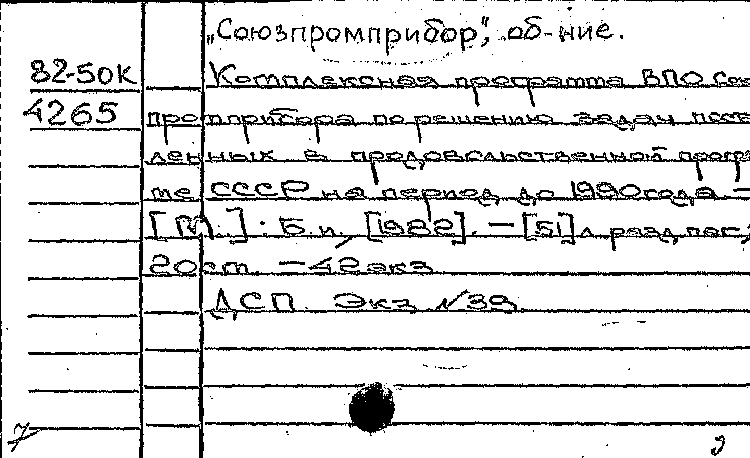 „Союзпромприбор", об-ние.
82-50К Комплексная программа ВПО Сою
4265 промприбора по решению задач постав
ленных в продовольственной програм
ме СССР на период до 1990 года. —
[М.]: Б.и., [1982]. — [51] л разд. паг.,
20 см. — 42 экз
ДСП. Экз №39